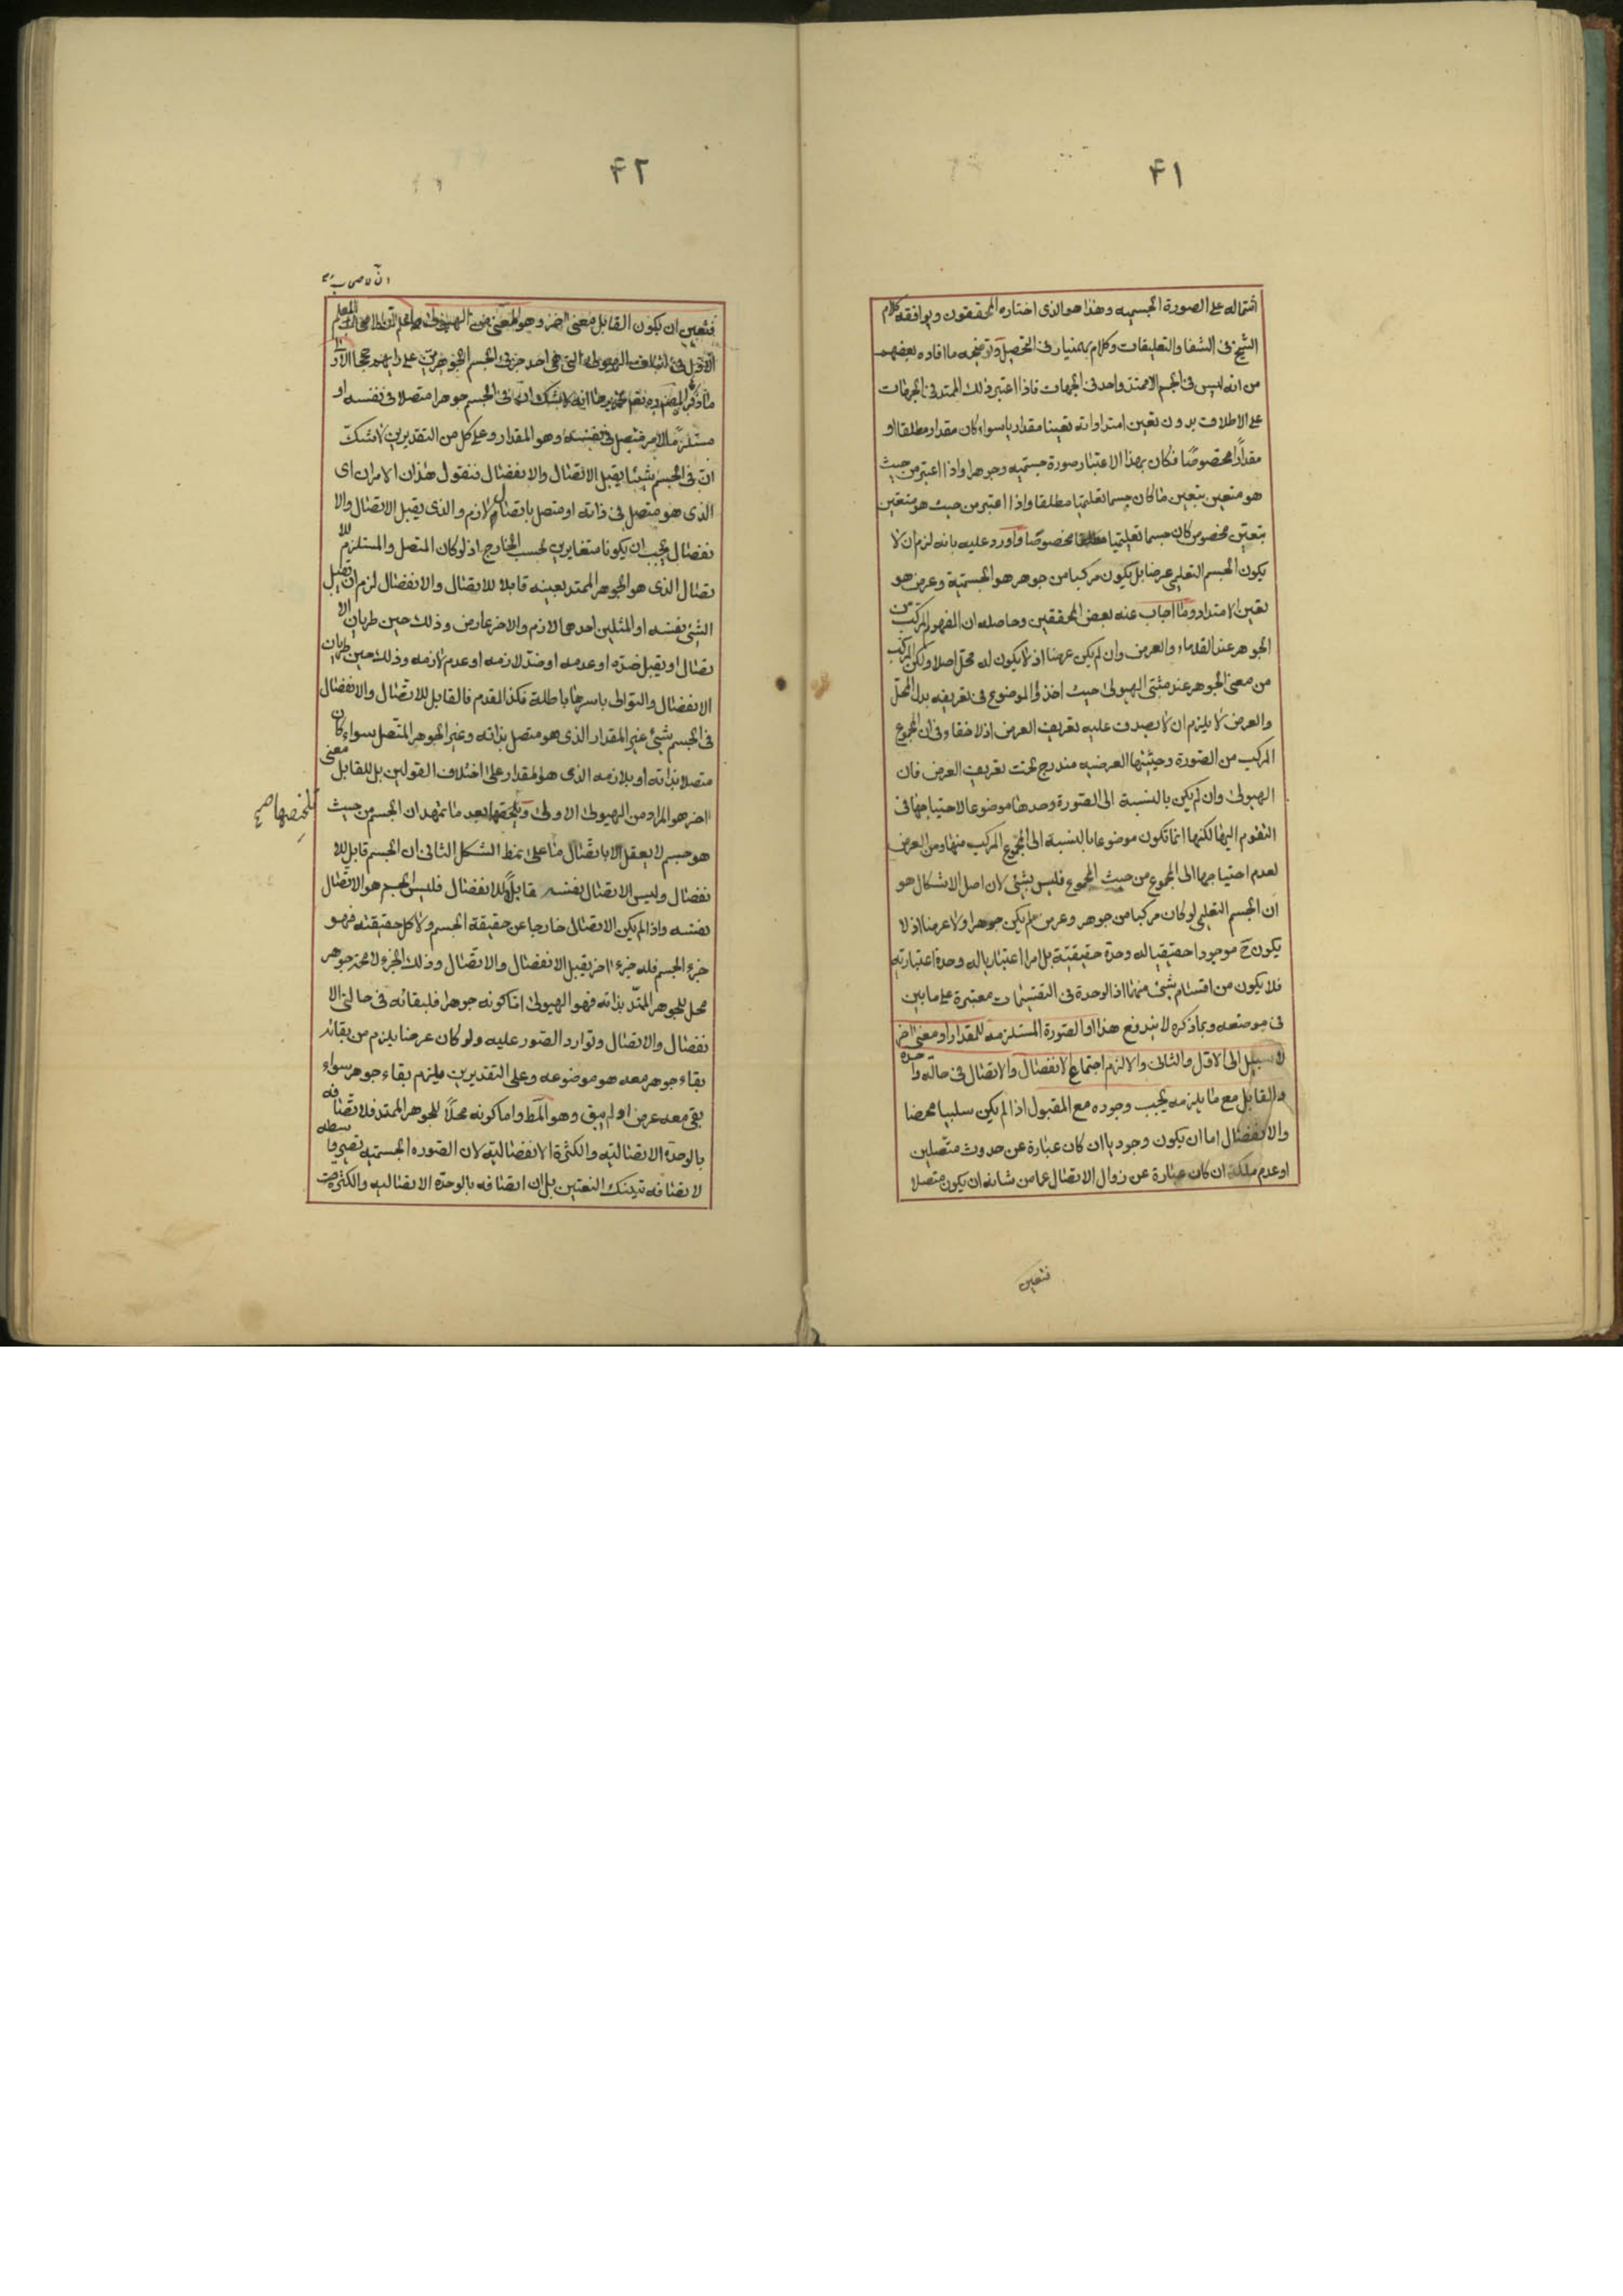 ۴۱
اشتماله على الصورة الجسميه وهذا هو الذى اختاره المحققون ويوافقه كلام
الشيخ فى الشفا والتعليقات وكلام بهمنيار فى التحصيل وتوضيحه ما افاده بعضهم
من انه ليس فى الجسم الا ممتد واحد فى الجهات فاذا اعتبر ذلك الممتد فى الجهات
على الاطلاق بدون تعين امتداداته تعينا مقداريا سواء كان مقدار مطلقا او
مقدارًا مخصوصًا فكان بهذا الاعتبار صورة جسميه وجوهرا واذا اعتبر من حيث
هو متعين بتعين ما كان جسما تعليميا مطلقا واذا اعتبر من حيث هو متعين
بتعين مخصوص كان جسما تعليميا مخصوصًا واورد عليه بانه لزم ان لا
يكون الجسم التعليمى عرضا بل يكون مركبا من جوهر هو الجسمية وعرض هو
تعين الامتداد وما اجاب عنه بعض المحققين وحاصله ان المفهوم المركب من
الجوهر عند القدماء والعرض وان لم يكن عرضا اذ لا يكون له محل اصلا ولكن المركب
من معنى الجوهر عند مثبتى الهيولى حيث اخذوا الموضوع فى تعريفه بدل المحل
والعرض لا يلزم ان لا يصدق عليه تعريف العرض اذ لا خفاء فى ان المجموع
المركب من الصورة وحيثيتها العرضيه مندرج تحت تعريف العرض فان
الهيولى وان لم يكن بالنسبة الى الصورة وحدها موضوعا لاحتياجها فى
التقوم اليها لكنها انما تكون موضوعا بالنسبة الى المجموع المركب منها ومن العرض
لعدم احتياجها الى المجموع من حيث المجموع فليس بشئ لان اصل الاشكال هو
ان الجسم التعليمى لو كان مركبا من جوهر وعرض لم يكن جوهرا ولا عرضا اذ لا
يكون ح موجودا حقيقيا له وحدة حقيقية بل امرا اعتباريا له وحدة اعتبارية
فلا يكون من اقسام شئ منهما اذ الوحدة فى التقسيمات معتبرة على ما بين
فى موضعه وبما ذكره لا يندفع هذا او الصورة المستلزمة للمقدار او معنى اخر
لا سبيل الى الاول والثانى والا لزم اجتماع الانفصال والاتصال فى حالة واحدة
والقابل مع ما يلزمه يجب وجوده مع المقبول اذا لم يكن سلبيا محضا
والانفصال اما ان يكون وجوديا ان كان عبارة عن حدوث متصلين
او عدم ملكة ان كان عبارة عن زوال الاتصال عما من شانه ان يكون متصلا
فتعين
۴۲
فتعين ان يكون القابل معنى اخر وهو المعنى من الهيولى
مستلزمًا لامر متصل فى نفسه وهو المقدار وعلى كل من التقديرين لا شك
ان فى الجسم شيئا يقبل الاتصال والانفصال فنقول هذان الامران اى
الذى هو متصل فى ذاته او متصل باتصال لازم والذى يقبل الاتصال والا
نفصال يجب ان يكونا متغايرين بحسب الخارج اذ لو كان المتصل والمستلزم للا
تصال الذى هو الجوهر الممتد بعينه قابلا للاتصال والانفصال لزم ان يقبل
الشئ نفسه او المثلين احدهما لازم والاخر عارض وذلك حين طريان الا
تصال او يقبل ضده او عدمه او ضد لازمه او عدم لازمه وذلك حين طريان
الانفصال والتوالى باسرها باطلة فكذا المقدم فالقابل للاتصال والانفصال
فى الجسم شئ غير المقدار الذى هو متصل بذاته وغير الجوهر المتصل سواء كان
متصلا بذاته او بلازمه الذى هو المقدار على اختلاف القولين بل للقابل معنى
اخر هو المراد من الهيولى الاولى وتلخيصها بعد ما تمهد ان الجسم من حيث
هو جسم لا يعقل الا باتصال ما على نمط الشكل الثانى ان الجسم قابل للا
نفصال وليس الاتصال نفسه قابلًا للانفصال فليس الجسم هو الاتصال
نفسه واذا لم يكن الاتصال خارجا عن حقيقة الجسم ولا كل حقيقته فهو
جزء الجسم فله جزء اخر يقبل الانفصال والاتصال وذلك الجزء لا محة جوهر
محل للجوهر الممتد بذاته فهو الهيولى اما كونه جوهرا فلبقائه فى حالتى الا
نفصال والاتصال وتوارد الصور عليه ولو كان عرضا يلزم من بقائه
بقاء جوهر معه هو موضوعه وعلى التقديرين يلزم بقاء جوهر سواء
بقى معه عرض او لم يبق وهو المط واما كونه محلًا للجوهر الممتد فلاتصافه
بالوحدة الاتصالية والكثرة الانفصالية لان الصوره الجسميه تصير واسطه
لاتصافه بتينك النعتين بل ان اتصافه بالوحدة الاتصاليه والكثرة
تلخيصها صح